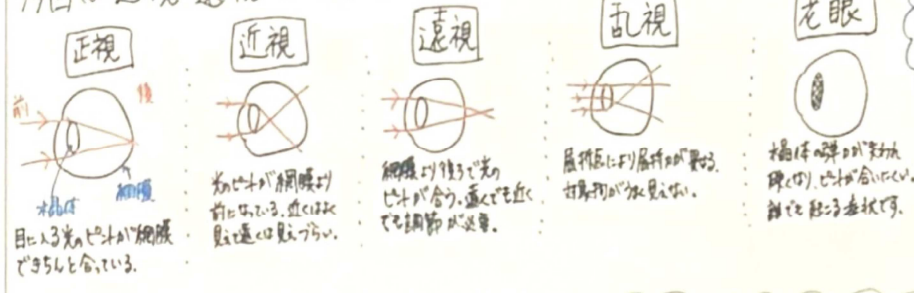 正視
前
後
水晶体
網膜
目に入る光のピントが網膜
できちんと合っている。
近視
光のピントが網膜より
前になっている。近くはよく
見えて遠くは見えづらい。
遠視
網膜より後ろで光の
ピントが合う。遠くでも近く
でも調節が必要。
乱視
により屈折力が異なる。
対象物がうまく見えない。
老眼
水晶体の弾力が失われ
硬くなり、ピントが合いにくい。
誰でも起こる症状です。